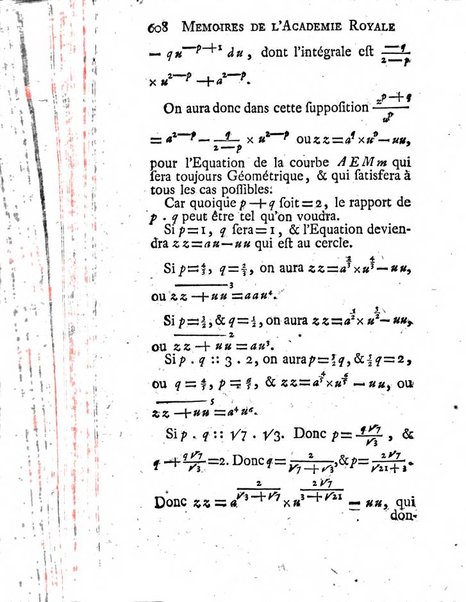 608 MEMOIRES DE L'ACADEMIE ROYALE
— qu^{—p+1} du, dont l'intégrale eſt \frac{—q}{2—p}
× u^{2—p} + a^{2—p}.
On aura donc dans cette ſuppoſition \frac{z^{p+q}}{u^p}
= a^{2—p} — \frac{q}{2—p} × u^{2—p} ou zz = a^q × u^p — uu,
pour l'Equation de la courbe AEMm qui
ſera toujours Géométrique, & qui ſatisfera à
tous les cas poſſibles.
Car quoique p+q ſoit = 2, le rapport de
p . q peut être tel qu'on voudra.
Si p=1, q ſera=1, & l'Equation devien-
dra zz = au — uu qui eſt au cercle.
Si p=\frac{4}{3}, q=\frac{2}{3}, on aura zz = a^{\frac{2}{3}} × u^{\frac{4}{3}} — uu,
ou \overline{zz + uu}^3 = aau^4.
Si p=\frac{3}{2}, & q=\frac{1}{2}, on aura zz = a^{\frac{1}{2}} × u^{\frac{3}{2}} — uu,
ou \overline{zz + uu}^2 = au^3.
Si p . q :: 3 . 2, on aura p=\frac{3}{2}q, & \frac{5}{2}q=2,
ou q=\frac{4}{5}, p=\frac{6}{5}, & zz = a^{\frac{4}{5}} × u^{\frac{6}{5}} — uu, ou
\overline{zz + uu}^5 = a^4u^6.
Si p . q :: √7 . √3. Donc p = \frac{q√7}{√3}, &
q + \frac{q√7}{√3} = 2. Donc q = \frac{2}{√7+√3}, & p = \frac{2√7}{√21+3}.
Donc zz = a^{\frac{2}{√3+√7}} × u^{\frac{2√7}{3+√21}} — uu, qui
don-